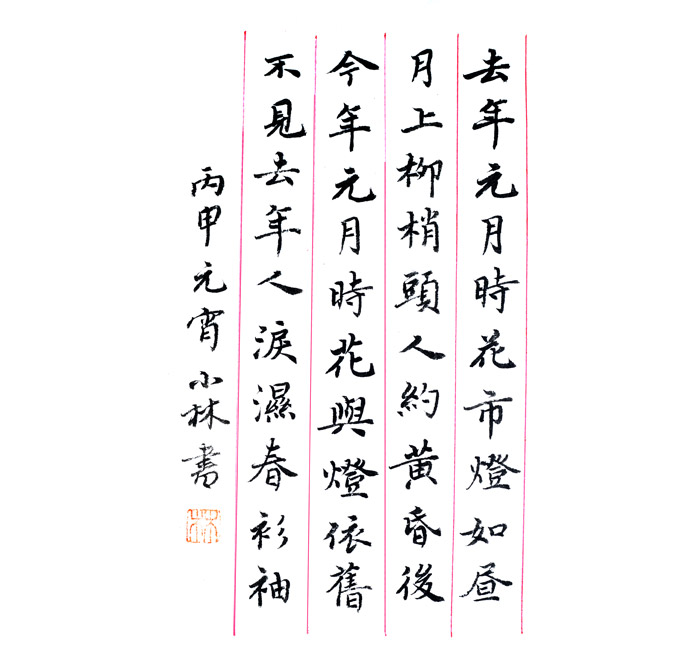 去年元月時花市燈如昼
月上柳梢頭人約黄昏後
今年元月時花與燈依舊
不見去年人淚濕春衫袖
丙申元宵小林書